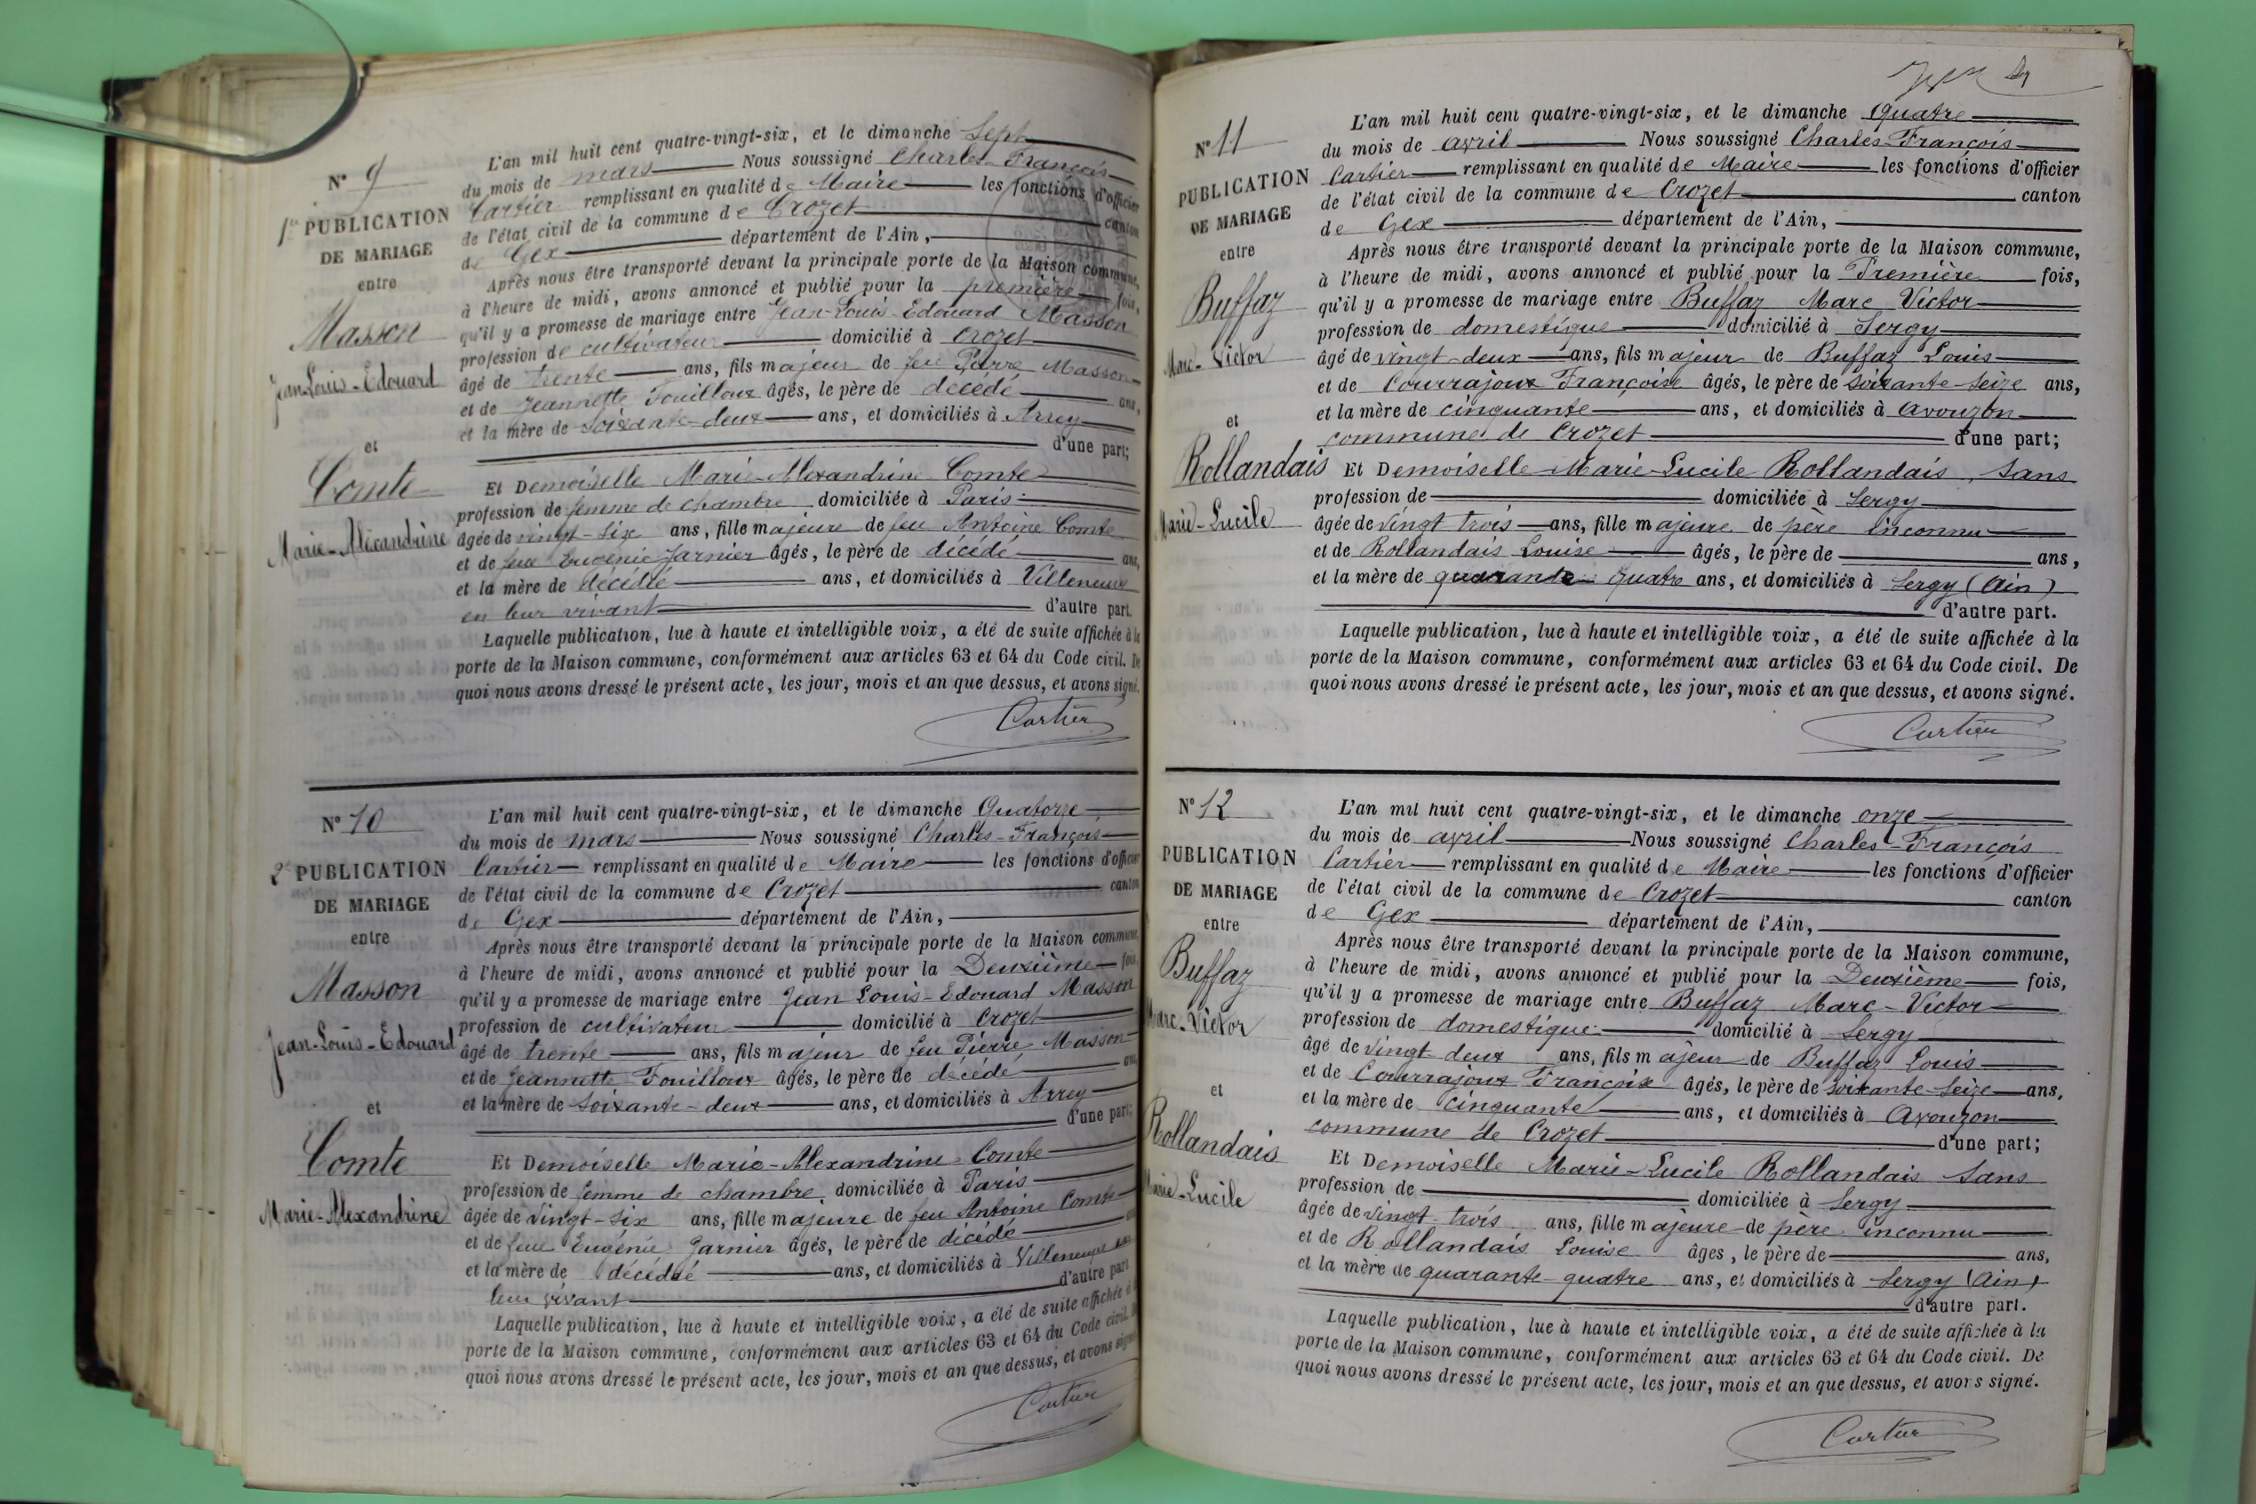 N° 9
1re PUBLICATION
DE MARIAGE
entre
Masson
Jean Louis-Edouard
et
Comte
Marie-Alexandrine
L'an mil huit cent quatre-vingt-six, et le dimanche Sept
du mois de mars Nous soussigné Charles François
Cartier remplissant en qualité de Maire les fonctions d'officier
de l'état civil de la commune de Crozet canton
de Gex département de l'Ain,
Après nous être transporté devant la principale porte de la Maison commune,
à l'heure de midi, avons annoncé et publié pour la première fois,
qu'il y a promesse de mariage entre Jean-Louis-Edouard Masson
profession de cultivateur domicilié à Crozet
âgé de trente ans, fils majeur de feu Pierre Masson
et de Jeannette Fouilloux âgés, le père de décédé ans,
et la mère de soixante-deux ans, et domiciliés à
d'une part;
Et Demoiselle Marie-Alexandrine Comte
profession de femme de chambre domiciliée à Paris
âgée de vingt-six ans, fille majeure de feu Antoine Comte
et de feue Eugénie Garnier âgés, le père de décédé ans,
et la mère de décédée ans, et domiciliés à Villeneuve
en leur vivant d'autre part.
Laquelle publication, lue à haute et intelligible voix, a été de suite affichée à la
porte de la Maison commune, conformément aux articles 63 et 64 du Code civil. De
quoi nous avons dressé le présent acte, les jour, mois et an que dessus, et avons signé.
Cartier
N° 10
2e PUBLICATION
DE MARIAGE
entre
Masson
Jean-Louis-Edouard
et
Comte
Marie-Alexandrine
L'an mil huit cent quatre-vingt-six, et le dimanche Quatorze
du mois de mars Nous soussigné Charles-François
Cartier remplissant en qualité de Maire les fonctions d'officier
de l'état civil de la commune de Crozet canton
de Gex département de l'Ain,
Après nous être transporté devant la principale porte de la Maison commune,
à l'heure de midi, avons annoncé et publié pour la Deuxième fois,
qu'il y a promesse de mariage entre Jean Louis-Edouard Masson
profession de cultivateur domicilié à Crozet
âgé de trente ans, fils majeur de feu Pierre Masson
et de Jeannette Fouilloux âgés, le père de décédé ans,
et la mère de soixante-deux ans, et domiciliés à
d'une part;
Et Demoiselle Marie-Alexandrine Comte
profession de femme de chambre, domiciliée à Paris
âgée de vingt-six ans, fille majeure de feu Antoine Comte
et de feue Eugénie Garnier âgés, le père de décédé ans
et la mère de décédée ans, et domiciliés à Villeneuve
leur vivant d'autre part
Laquelle publication, lue à haute et intelligible voix, a été de suite affichée à la
porte de la Maison commune, conformément aux articles 63 et 64 du Code civil. De
quoi nous avons dressé le présent acte, les jour, mois et an que dessus, et avons signé
Cartier
N° 11
PUBLICATION
DE MARIAGE
entre
Buffaz
Marc-Victor
et
Rollandais
Marie-Lucile
L'an mil huit cent quatre-vingt-six, et le dimanche Quatre
du mois de avril Nous soussigné Charles-François
Cartier remplissant en qualité de Maire les fonctions d'officier
de l'état civil de la commune de Crozet canton
de Gex département de l'Ain,
Après nous être transporté devant la principale porte de la Maison commune,
à l'heure de midi, avons annoncé et publié pour la Première fois,
qu'il y a promesse de mariage entre Buffaz Marc Victor
profession de domestique domicilié à Sergy
âgé de vingt-deux ans, fils majeur de Buffaz Louis
et de Courrajoux Françoise âgés, le père de soixante-seize ans,
et la mère de cinquante ans, et domiciliés à avouzon
commune de Crozet d'une part;
Et Demoiselle Marie-Lucile Rollandais, sans
profession de domiciliée à Sergy
âgée de vingt trois ans, fille majeure de père inconnu
et de Rollandais Louise âgés, le père de ans,
et la mère de quarante-quatre ans, et domiciliés à Sergy (Ain)
d'autre part.
Laquelle publication, lue à haute et intelligible voix, a été de suite affichée à la
porte de la Maison commune, conformément aux articles 63 et 64 du Code civil. De
quoi nous avons dressé le présent acte, les jour, mois et an que dessus, et avons signé.
Cartier
N° 12
PUBLICATION
DE MARIAGE
entre
Buffaz
Marc-Victor
et
Rollandais
Marie-Lucile
L'an mil huit cent quatre-vingt-six, et le dimanche onze
du mois de avril Nous soussigné Charles-François
Cartier remplissant en qualité de Maire les fonctions d'officier
de l'état civil de la commune de Crozet canton
de Gex département de l'Ain,
Après nous être transporté devant la principale porte de la Maison commune,
à l'heure de midi, avons annoncé et publié pour la Deuxième fois,
qu'il y a promesse de mariage entre Buffaz Marc-Victor
profession de domestique domicilié à Sergy
âgé de vingt deux ans, fils majeur de Buffaz Louis
et de Courrajoux Françoise âgés, le père de soixante-seize ans,
et la mère de cinquante ans, et domiciliés à avouzon
commune de Crozet d'une part;
Et Demoiselle Marie-Lucile Rollandais sans
profession de domiciliée à Sergy
âgée de vingt-trois ans, fille majeure de père inconnu
et de Rollandais Louise âgés, le père de ans,
et la mère de quarante-quatre ans, et domiciliés à Sergy (Ain)
d'autre part.
Laquelle publication, lue à haute et intelligible voix, a été de suite affichée à la
porte de la Maison commune, conformément aux articles 63 et 64 du Code civil. De
quoi nous avons dressé le présent acte, les jour, mois et an que dessus, et avons signé.
Cartier